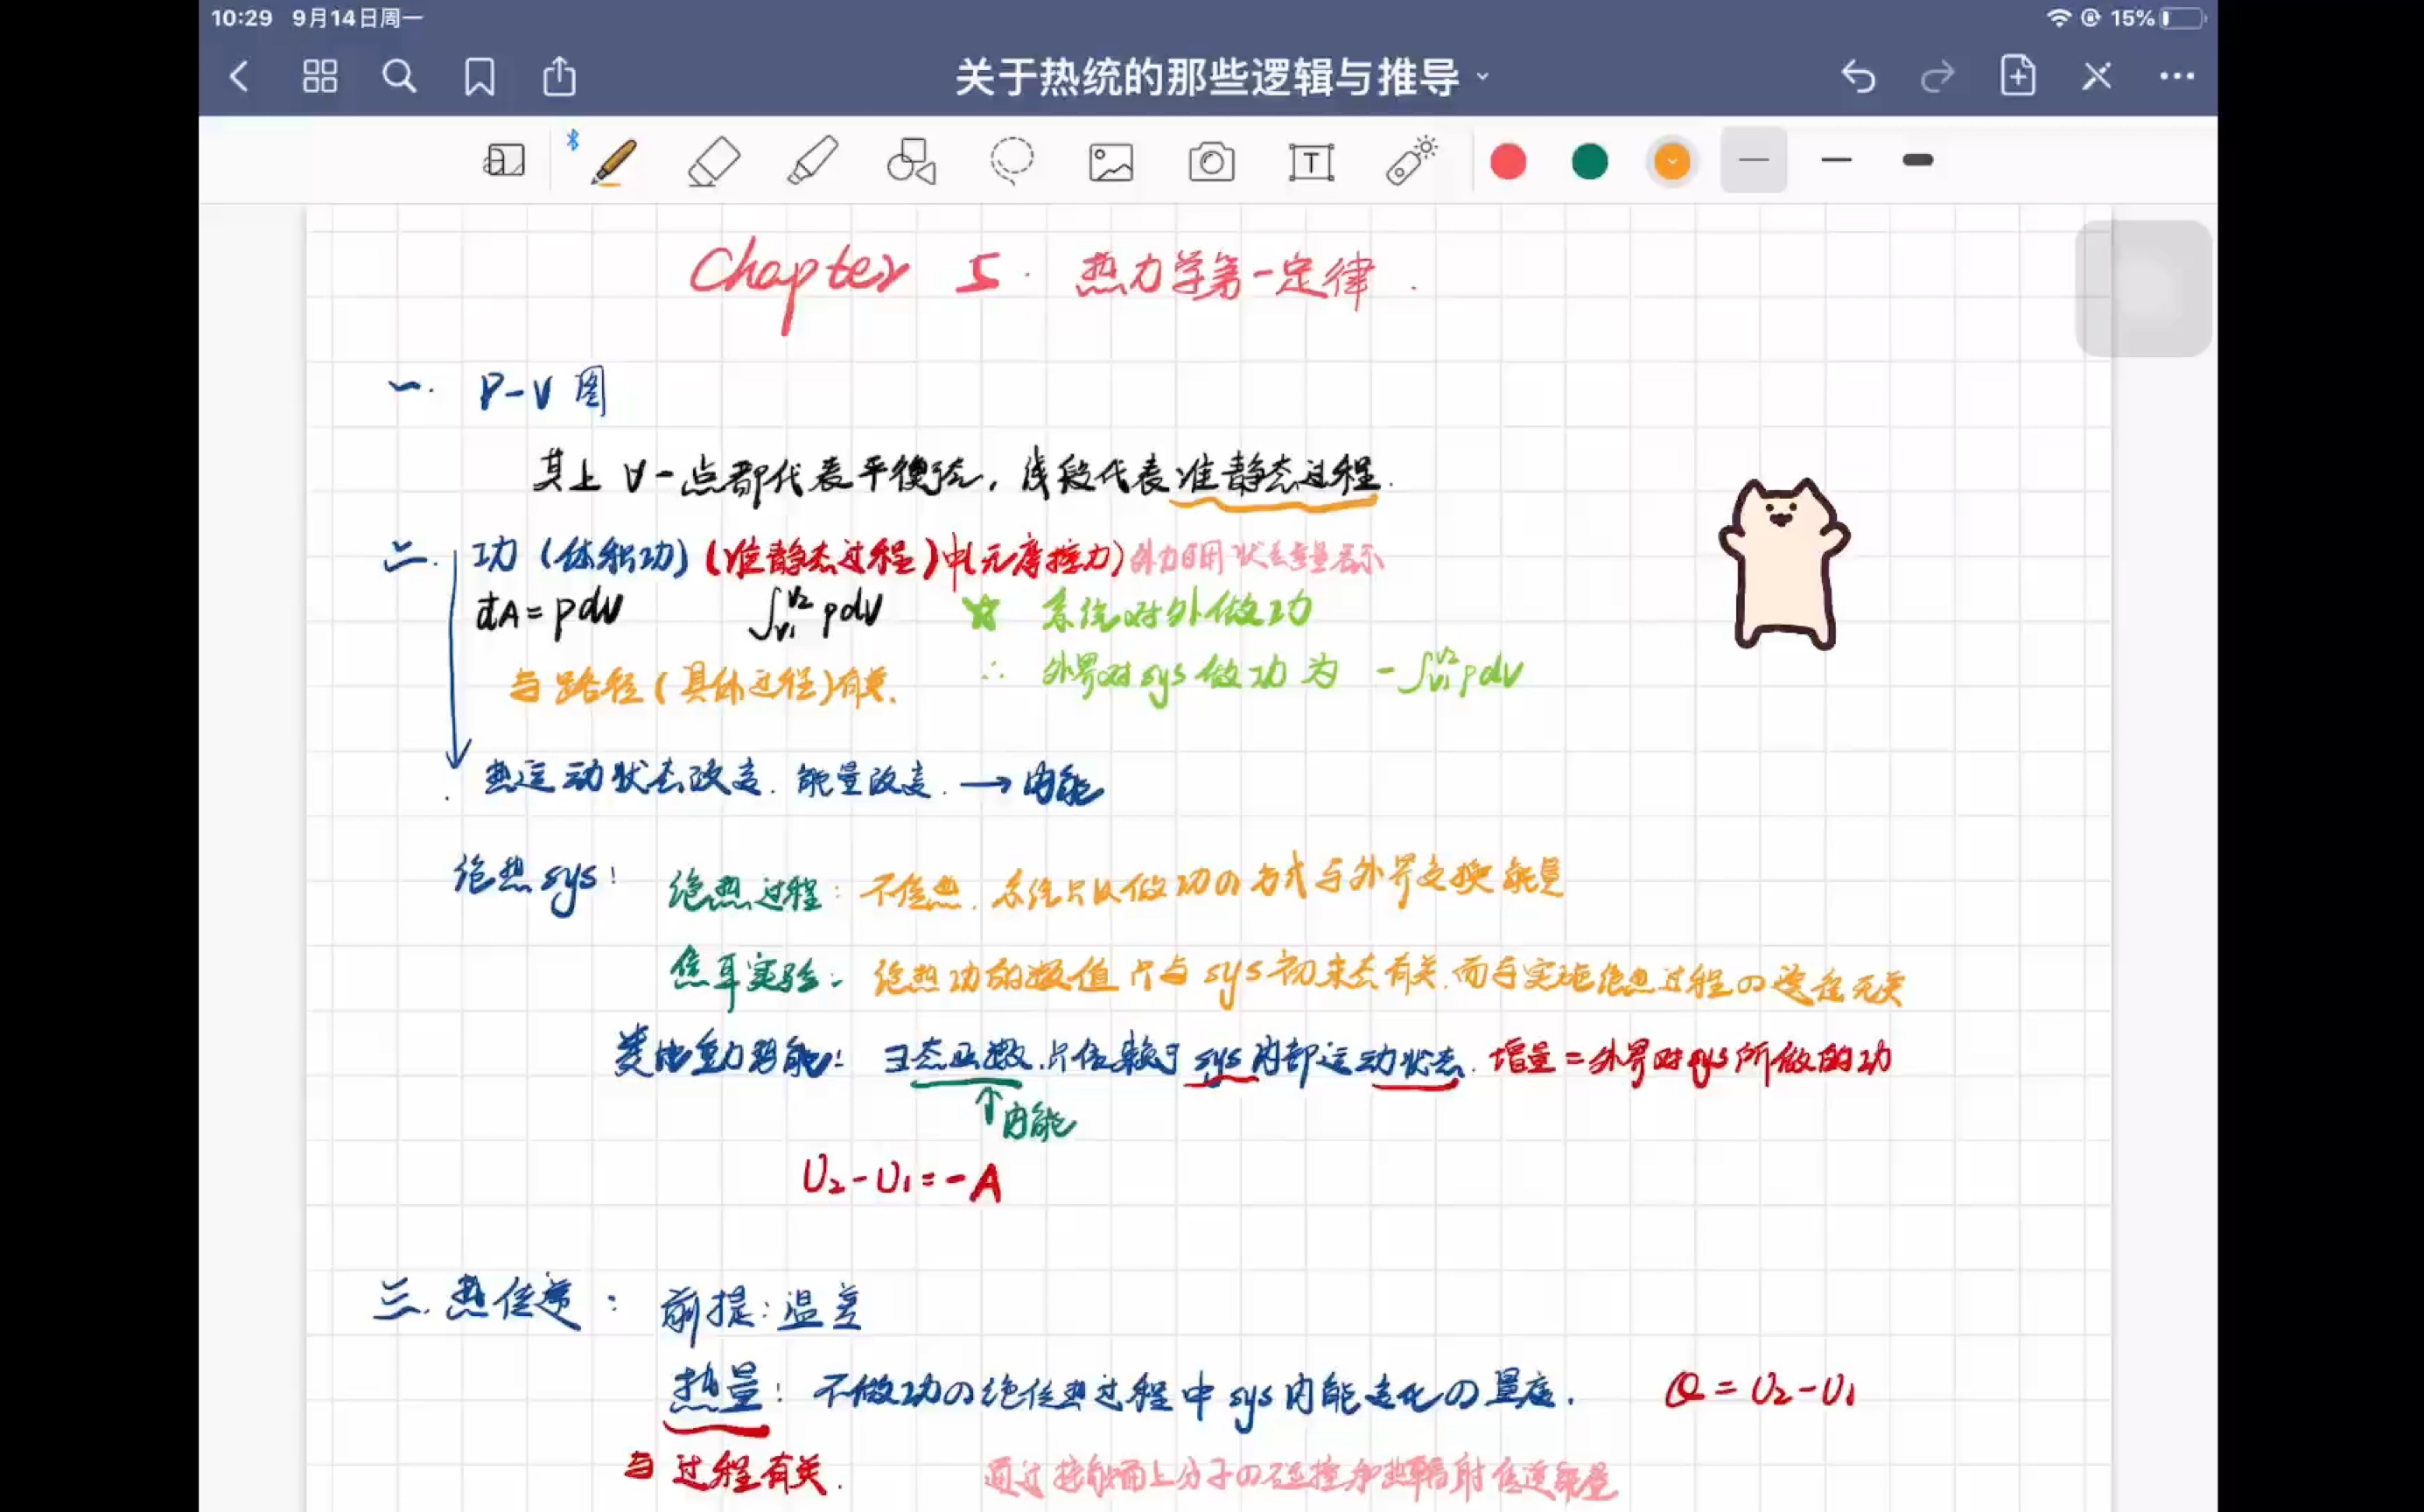 10:29 9月14日周一
15%
关于热统的那些逻辑与推导
T
Chapter 5. 热力学第一定律.
一. P-V 图
其上 ∀一点都代表平衡态, 线段代表准静态过程.
二. 功 (体积功) (准静态过程)中(无摩擦力) 外力可用状态参量表示
đA = pdV ∫V1V2 pdV ☆ 系统对外做功
与路径(具体过程)有关. ∴ 外界对sys做功为 -∫V1V2 pdV
热运动状态改变. 能量改变. → 内能
绝热sys: 绝热过程: 不传热. 系统只以做功の方式与外界交换能量
焦耳实验: 绝热功的数值只与sys初末态有关.而与实施绝热过程の途径无关
类比重力势能: 态函数.只依赖于sys内部运动状态. 增量=外界对sys所做的功
↑内能
U2-U1=-A
三. 热传递: 前提: 温差
热量: 不做功の纯传热过程中sys内能变化の量度. Q=U2-U1
与过程有关. 通过接触面上分子の碰撞和热辐射传递能量